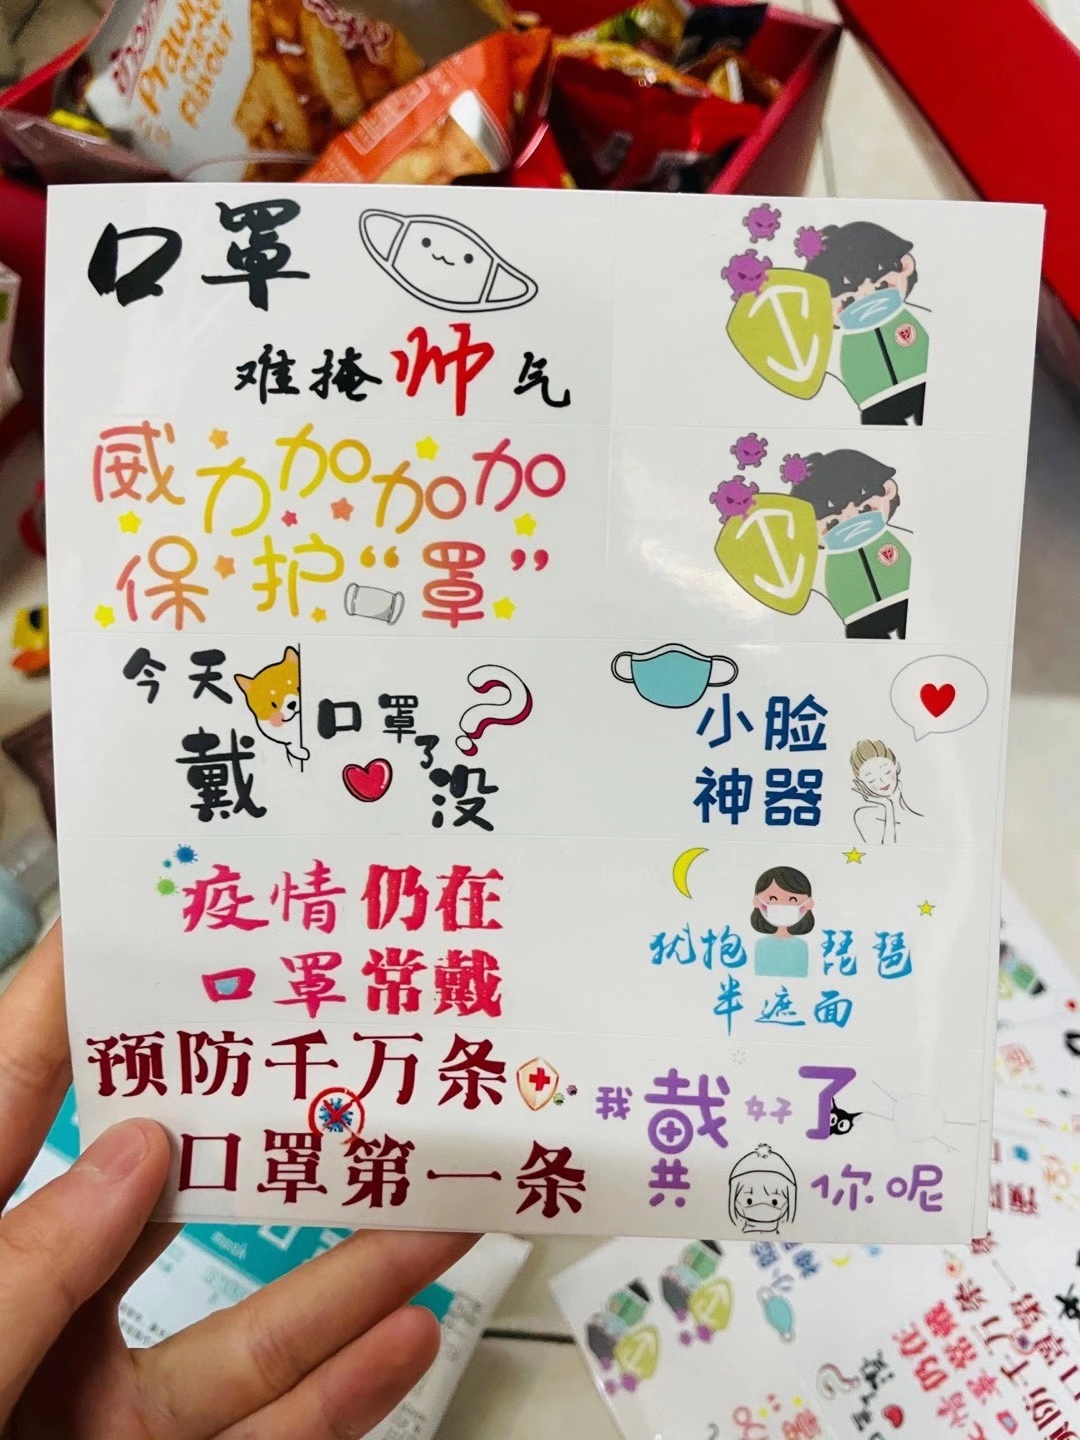 Prawn
FLAVOUR
口罩
难掩帅气
威力加加加
保护“罩”
今天
戴口罩了没
小脸
神器
疫情仍在
口罩常戴
犹抱琵琶
半遮面
预防千万条
口罩第一条
我戴好了
你呢